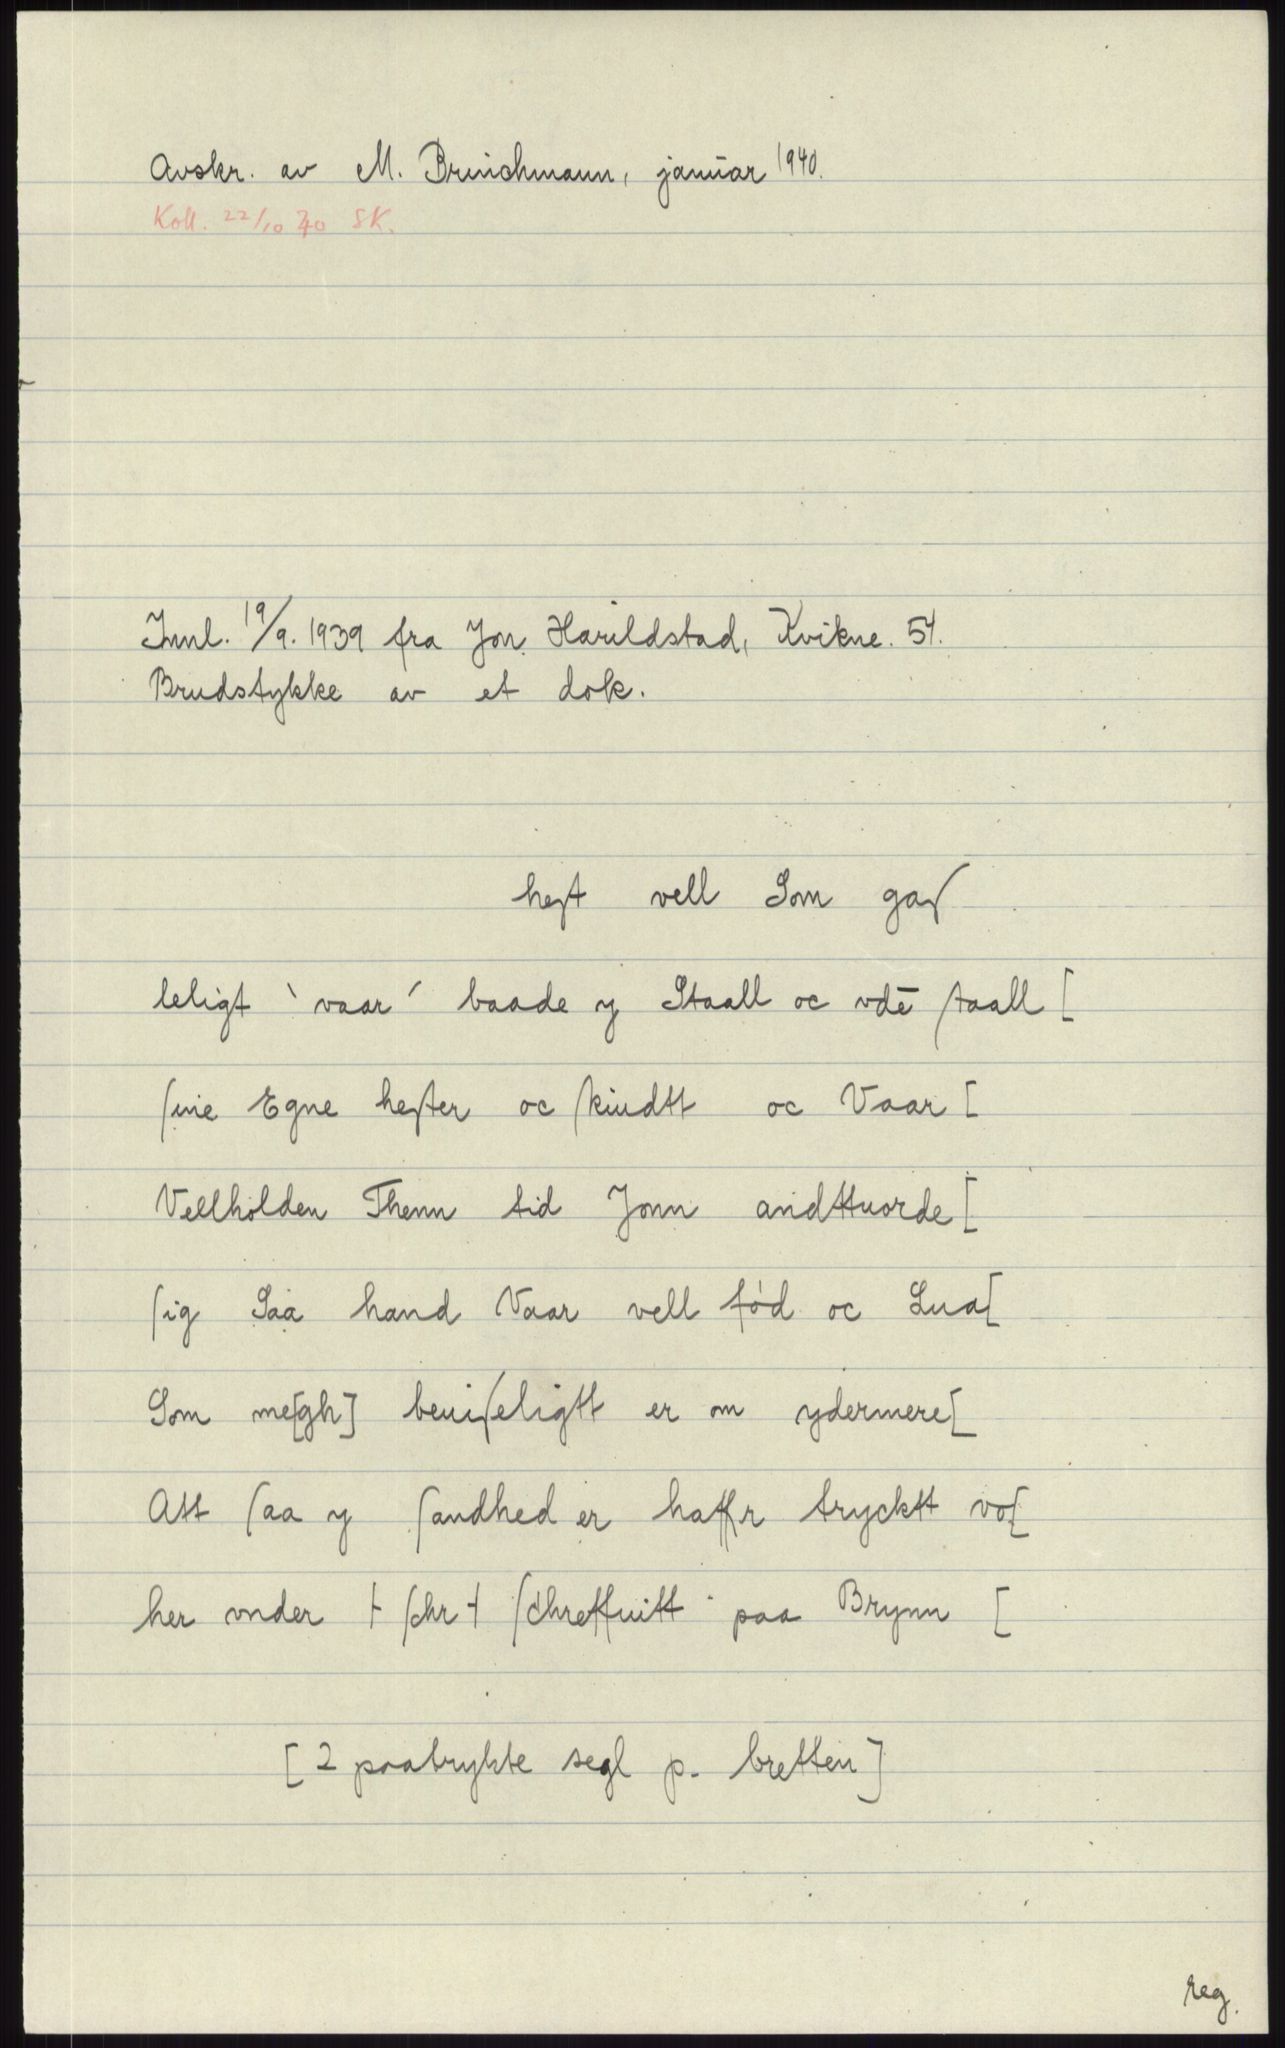 Avskr. av M. Brinchmann, januar 1940.
Koll. 22/10 70 SK.
Innl. 19/9. 1939 fra Jon Harildstad, Kvikne. 54.
Brudstykke av et dok.
heſt vell Som gaſ
leligt ` vaar ´ baade y Staall oc vdē ſtaall [
ſine Egne heſter oc ſkindtt oc Vaar [
Vellholden Thenn tid Jonn andttuorde [
ſig Saa hand Vaar vell fód oc Lua[
Som me[gh] beuiſeligtt er om ydermere[
Att ſaa y ſandhed er haffr trycktt vo[
her vnder ⸠ ſchr ⸡ ſchreffuitt paa Brynn [
[2 paatrykte segl p. bretten]
reg.